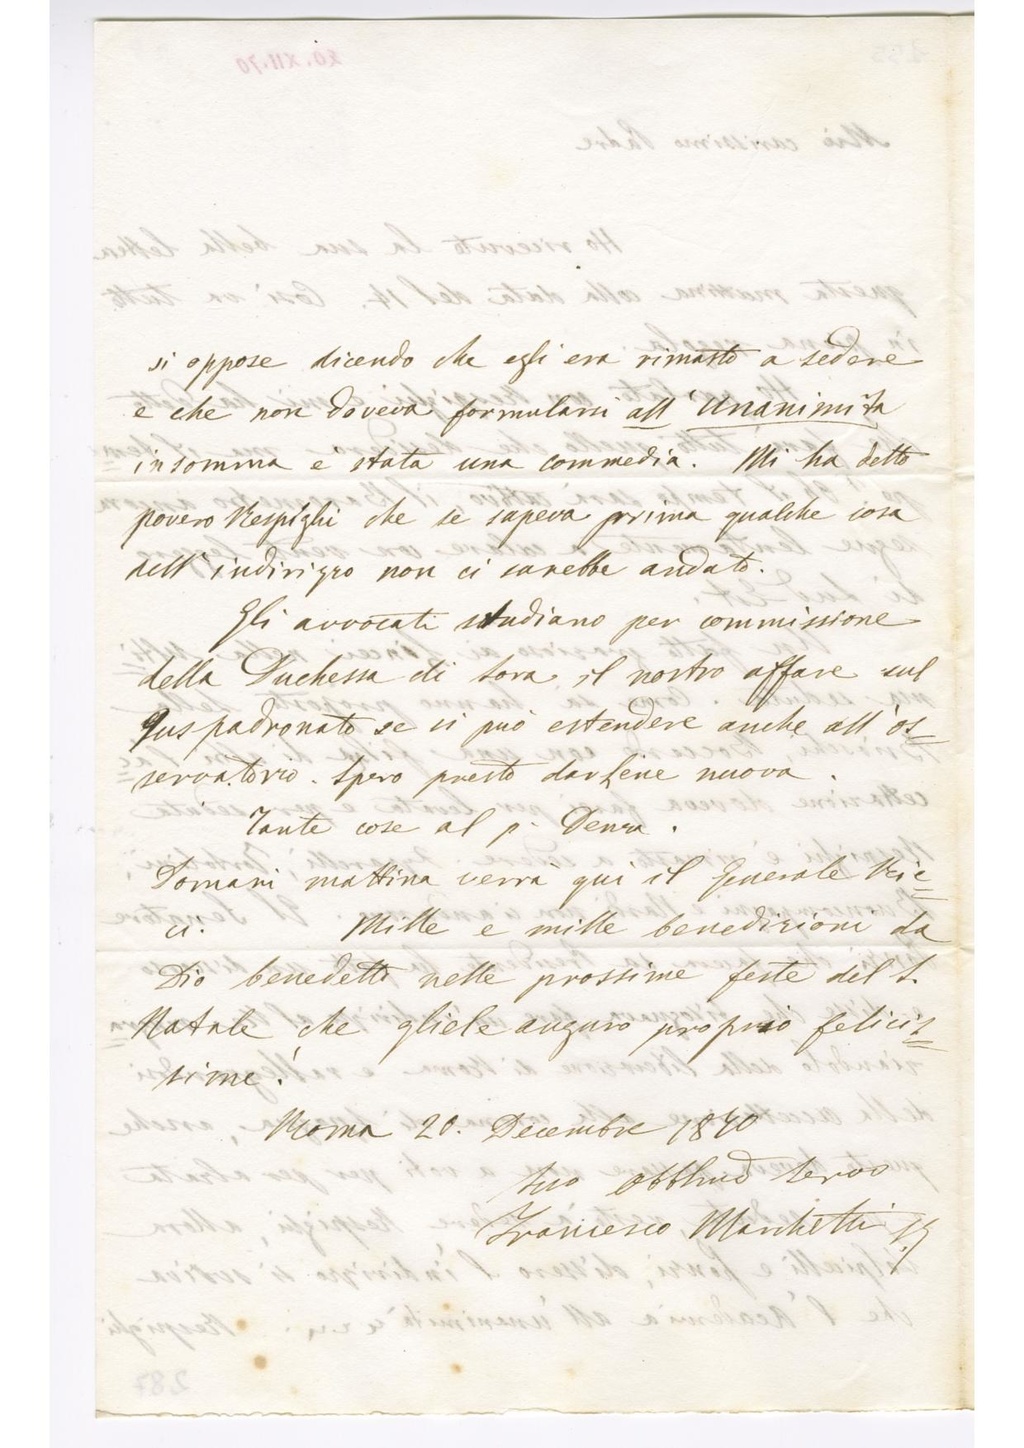 si oppose dicendo che egli era rimasto a sedere
e che non doveva formularsi all' unanimità
insomma e' stata una commedia. Mi ha detto
povero Respighi che se sapeva prima qualche cosa
dell' indirizzo non ci sarebbe andato.
Gli avvocati studiano per commissione
della Duchessa di Sora il nostro affare sul
Juspadronato se si può estendere anche all' os=
servatorio. Spero presto darlene nuova.
Tante cose al p. Denza.
Domani mattina verrà qui il Generale Ric=
ci. Mille e mille benedizioni da
Dio benedetto nelle prossime feste del S.
Natale che gliele auguro proprio felicis=
sime!
Roma 20. Decembre 1870
Suo Obblmo Servo
Francesco Marchetti